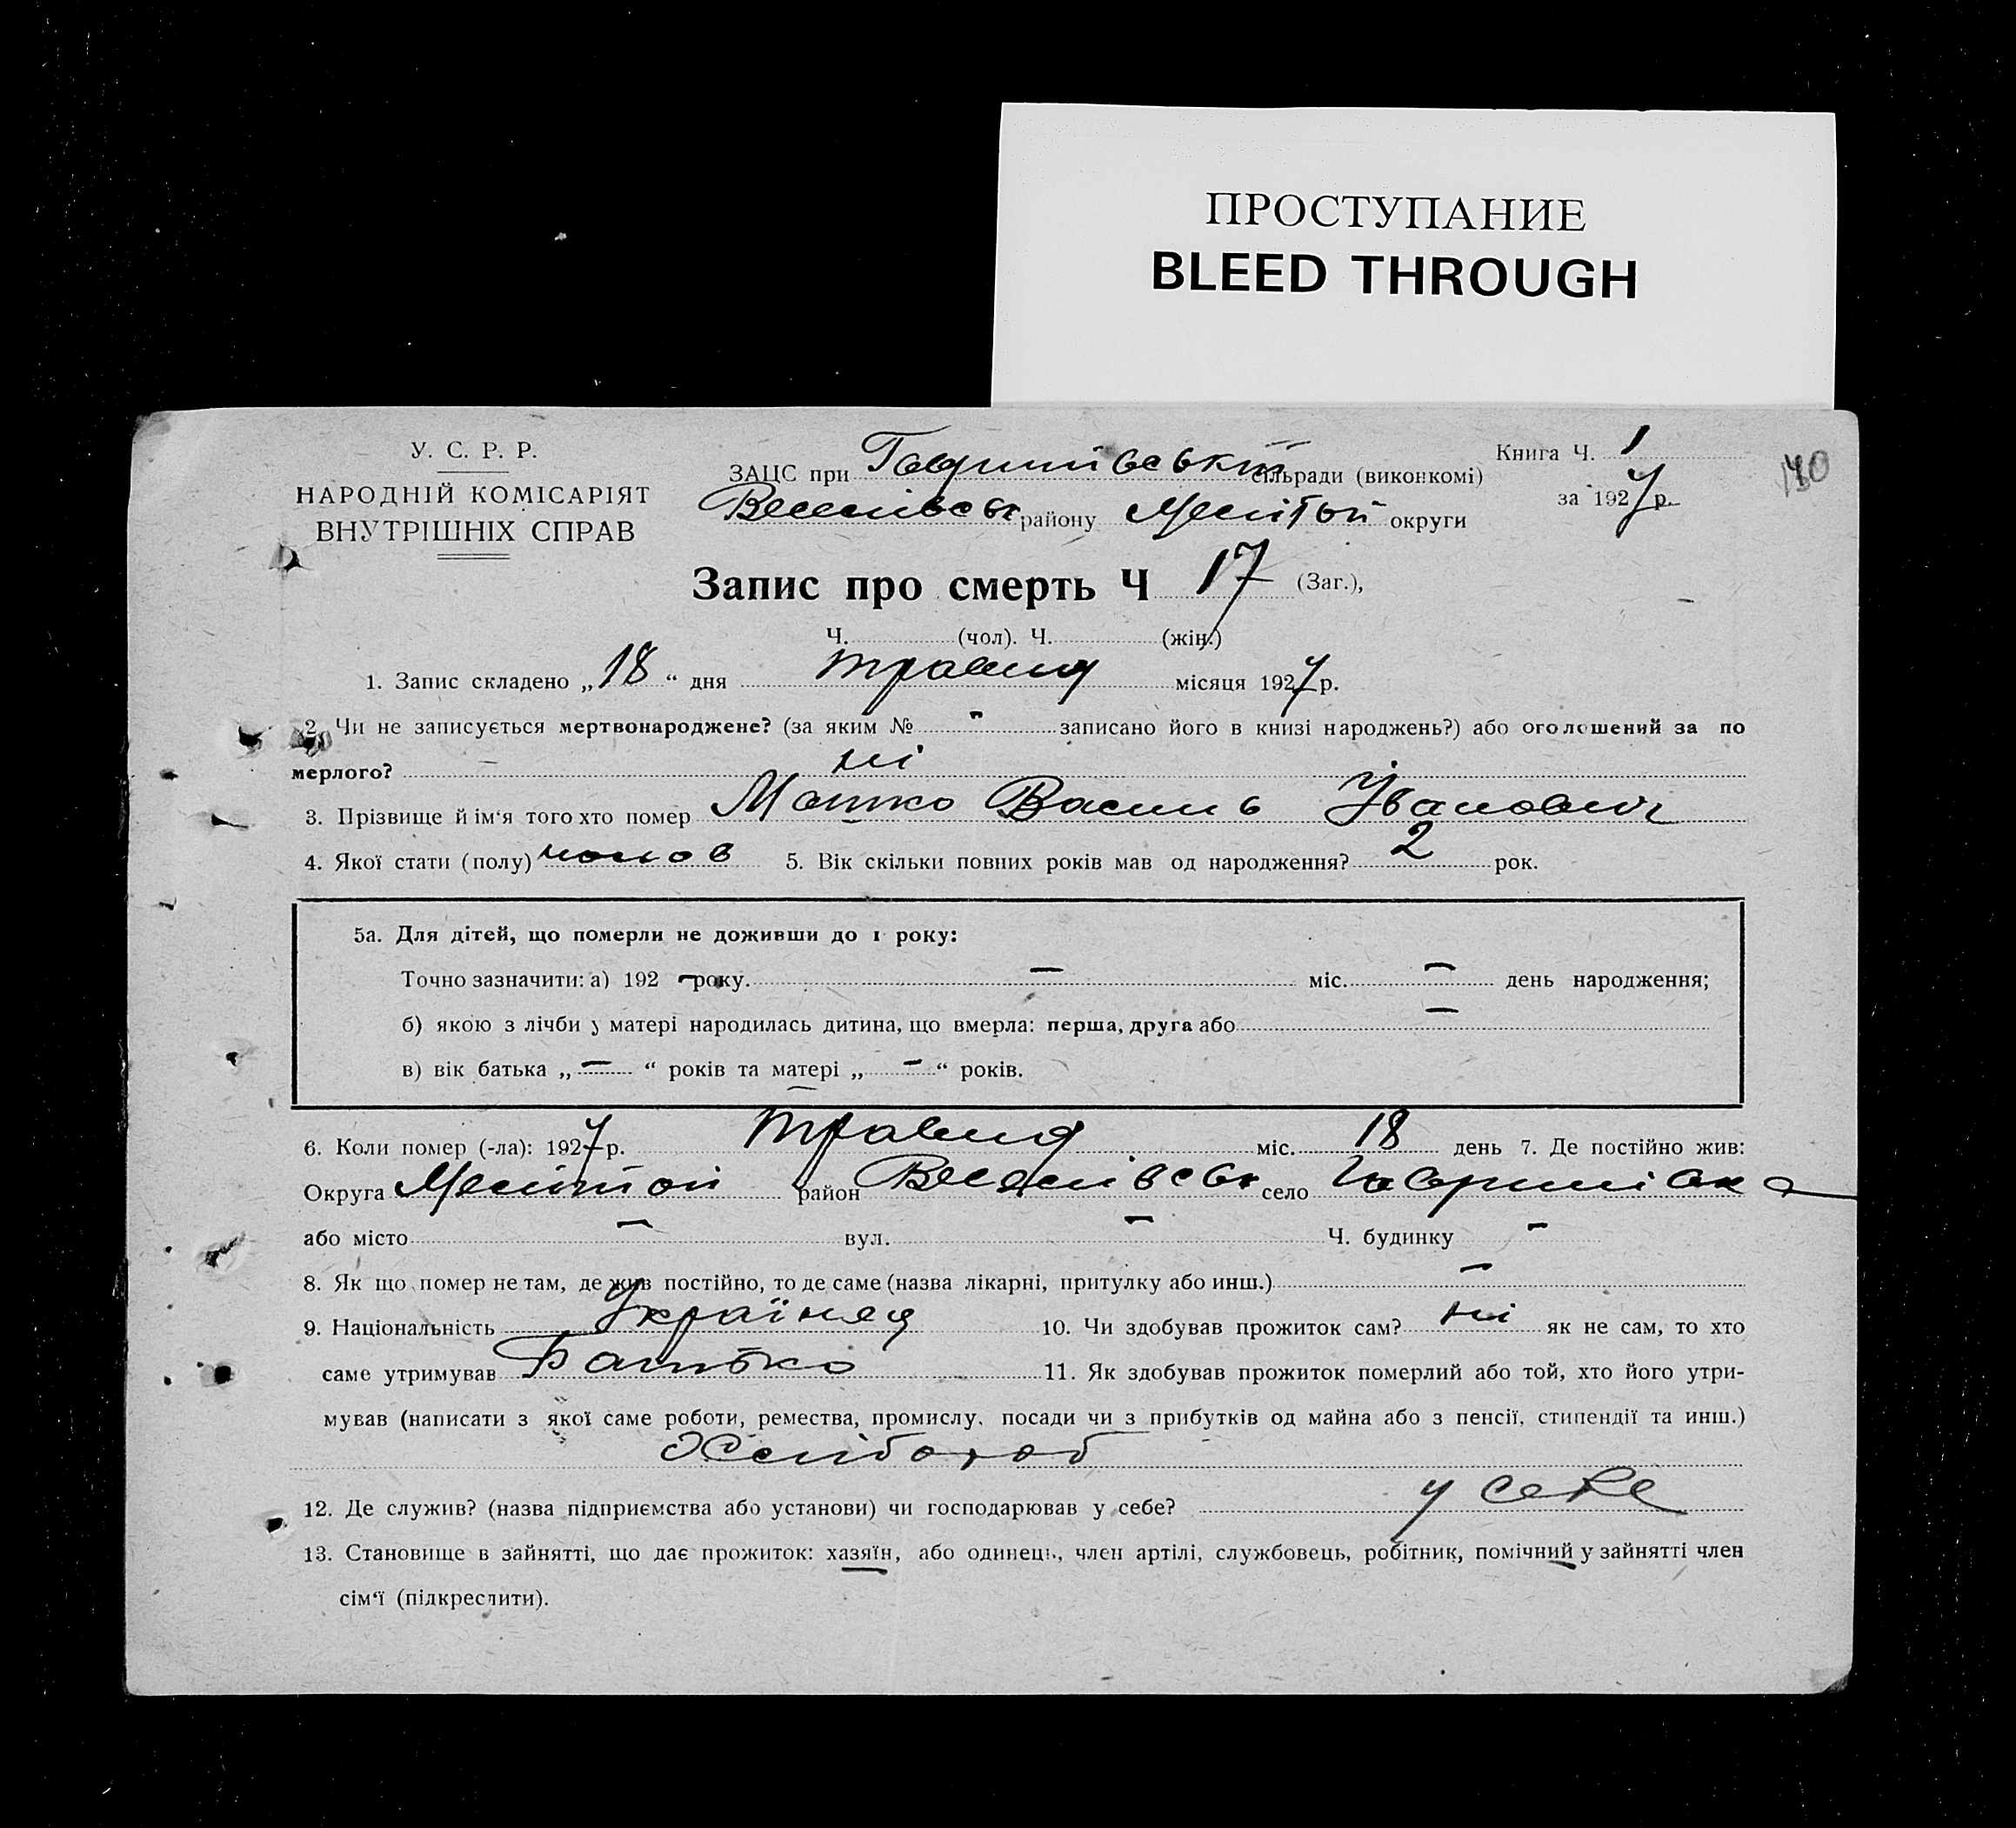 ПРОСТУПАНИЕ
BLEED THROUGH
У. С. Р. Р.
НАРОДНІЙ КОМІСАРІЯТ
ВНУТРІШНІХ СПРАВ
ЗАЦС при Гаврилівській сільради (виконкомі)
Веселівськ району Мелітой округи
Книга Ч. 1
за 1927 р.
Запис про смерть Ч 17 (Заг.),
Ч. (чол). Ч. (жін.)
1. Запис складено „18“ дня травня місяця 1927 р.
2. Чи не записується мертвонароджене? (за яким № - записано його в книзі народжень?) або оголошений за по
мерлого? ні
3. Прізвище й ім‘я того хто помер Матко Василь Іванович
4. Якої стати (полу) чолов 5. Вік скільки повних років мав од народження? 2 рок.
5а. Для дітей, що померли не доживши до 1 року:
Точно зазначити: а) 192 - року. - міс. - день народження;
б) якою з лічби у матері народилась дитина, що вмерла: перша, друга або -
в) вік батька „-“ років та матері „-“ років.
6. Коли помер (-ла): 1927 р. травня міс. 18 день 7. Де постійно жив:
Округа Меліттой район Веселівськ село Гаврилівка
або місто - вул. - Ч. будинку -
8. Як що помер не там, де жив постійно, то де саме (назва лікарні, притулку або инш.) -
9. Національність Українец 10. Чи здобував прожиток сам? ні як не сам, то хто
саме утримував Батько 11. Як здобував прожиток померлий або той, хто його утри-
мував (написати з якої саме роботи, ремества, промислу, посади чи з прибутків од майна або з пенсії, стипендії та инш.)
Хлібороб
12. Де служив? (назва підприємства або установи) чи господарював у себе? у себе
13. Становище в зайнятті, що дає прожиток: хазяїн, або одинець, член артілі, службовець, робітник, помічний у зайнятті член
сім‘ї (підкреслити).